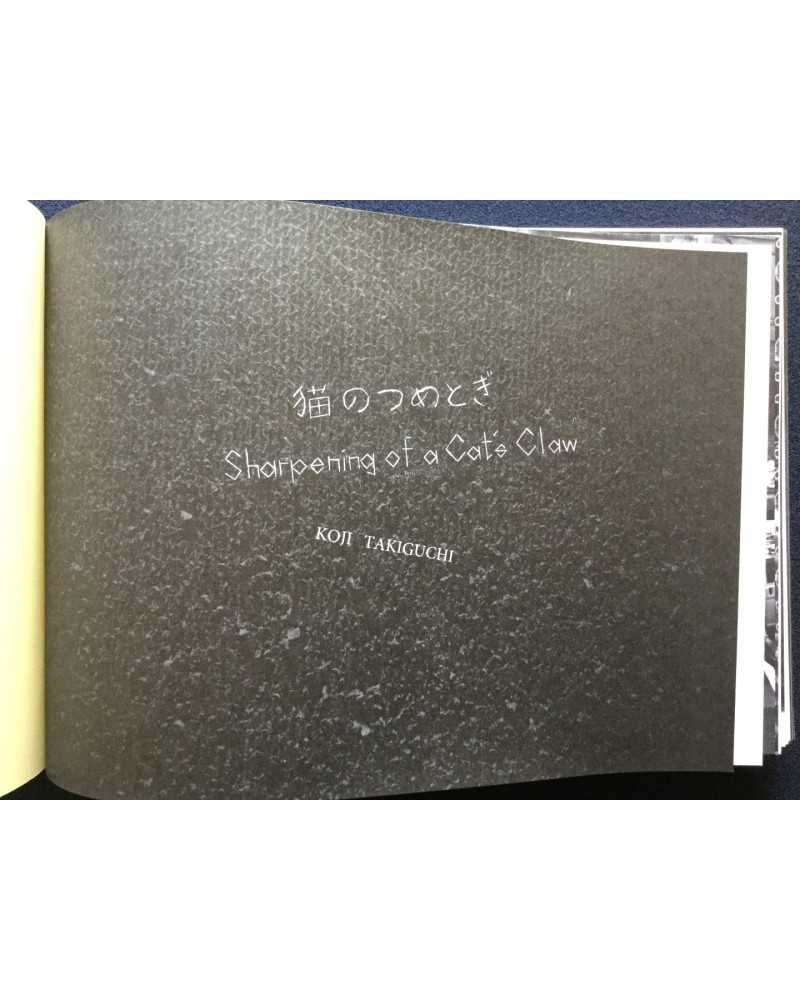 猫のつめとぎ
Sharpening of a Cat's Claw
KOJI TAKIGUCHI